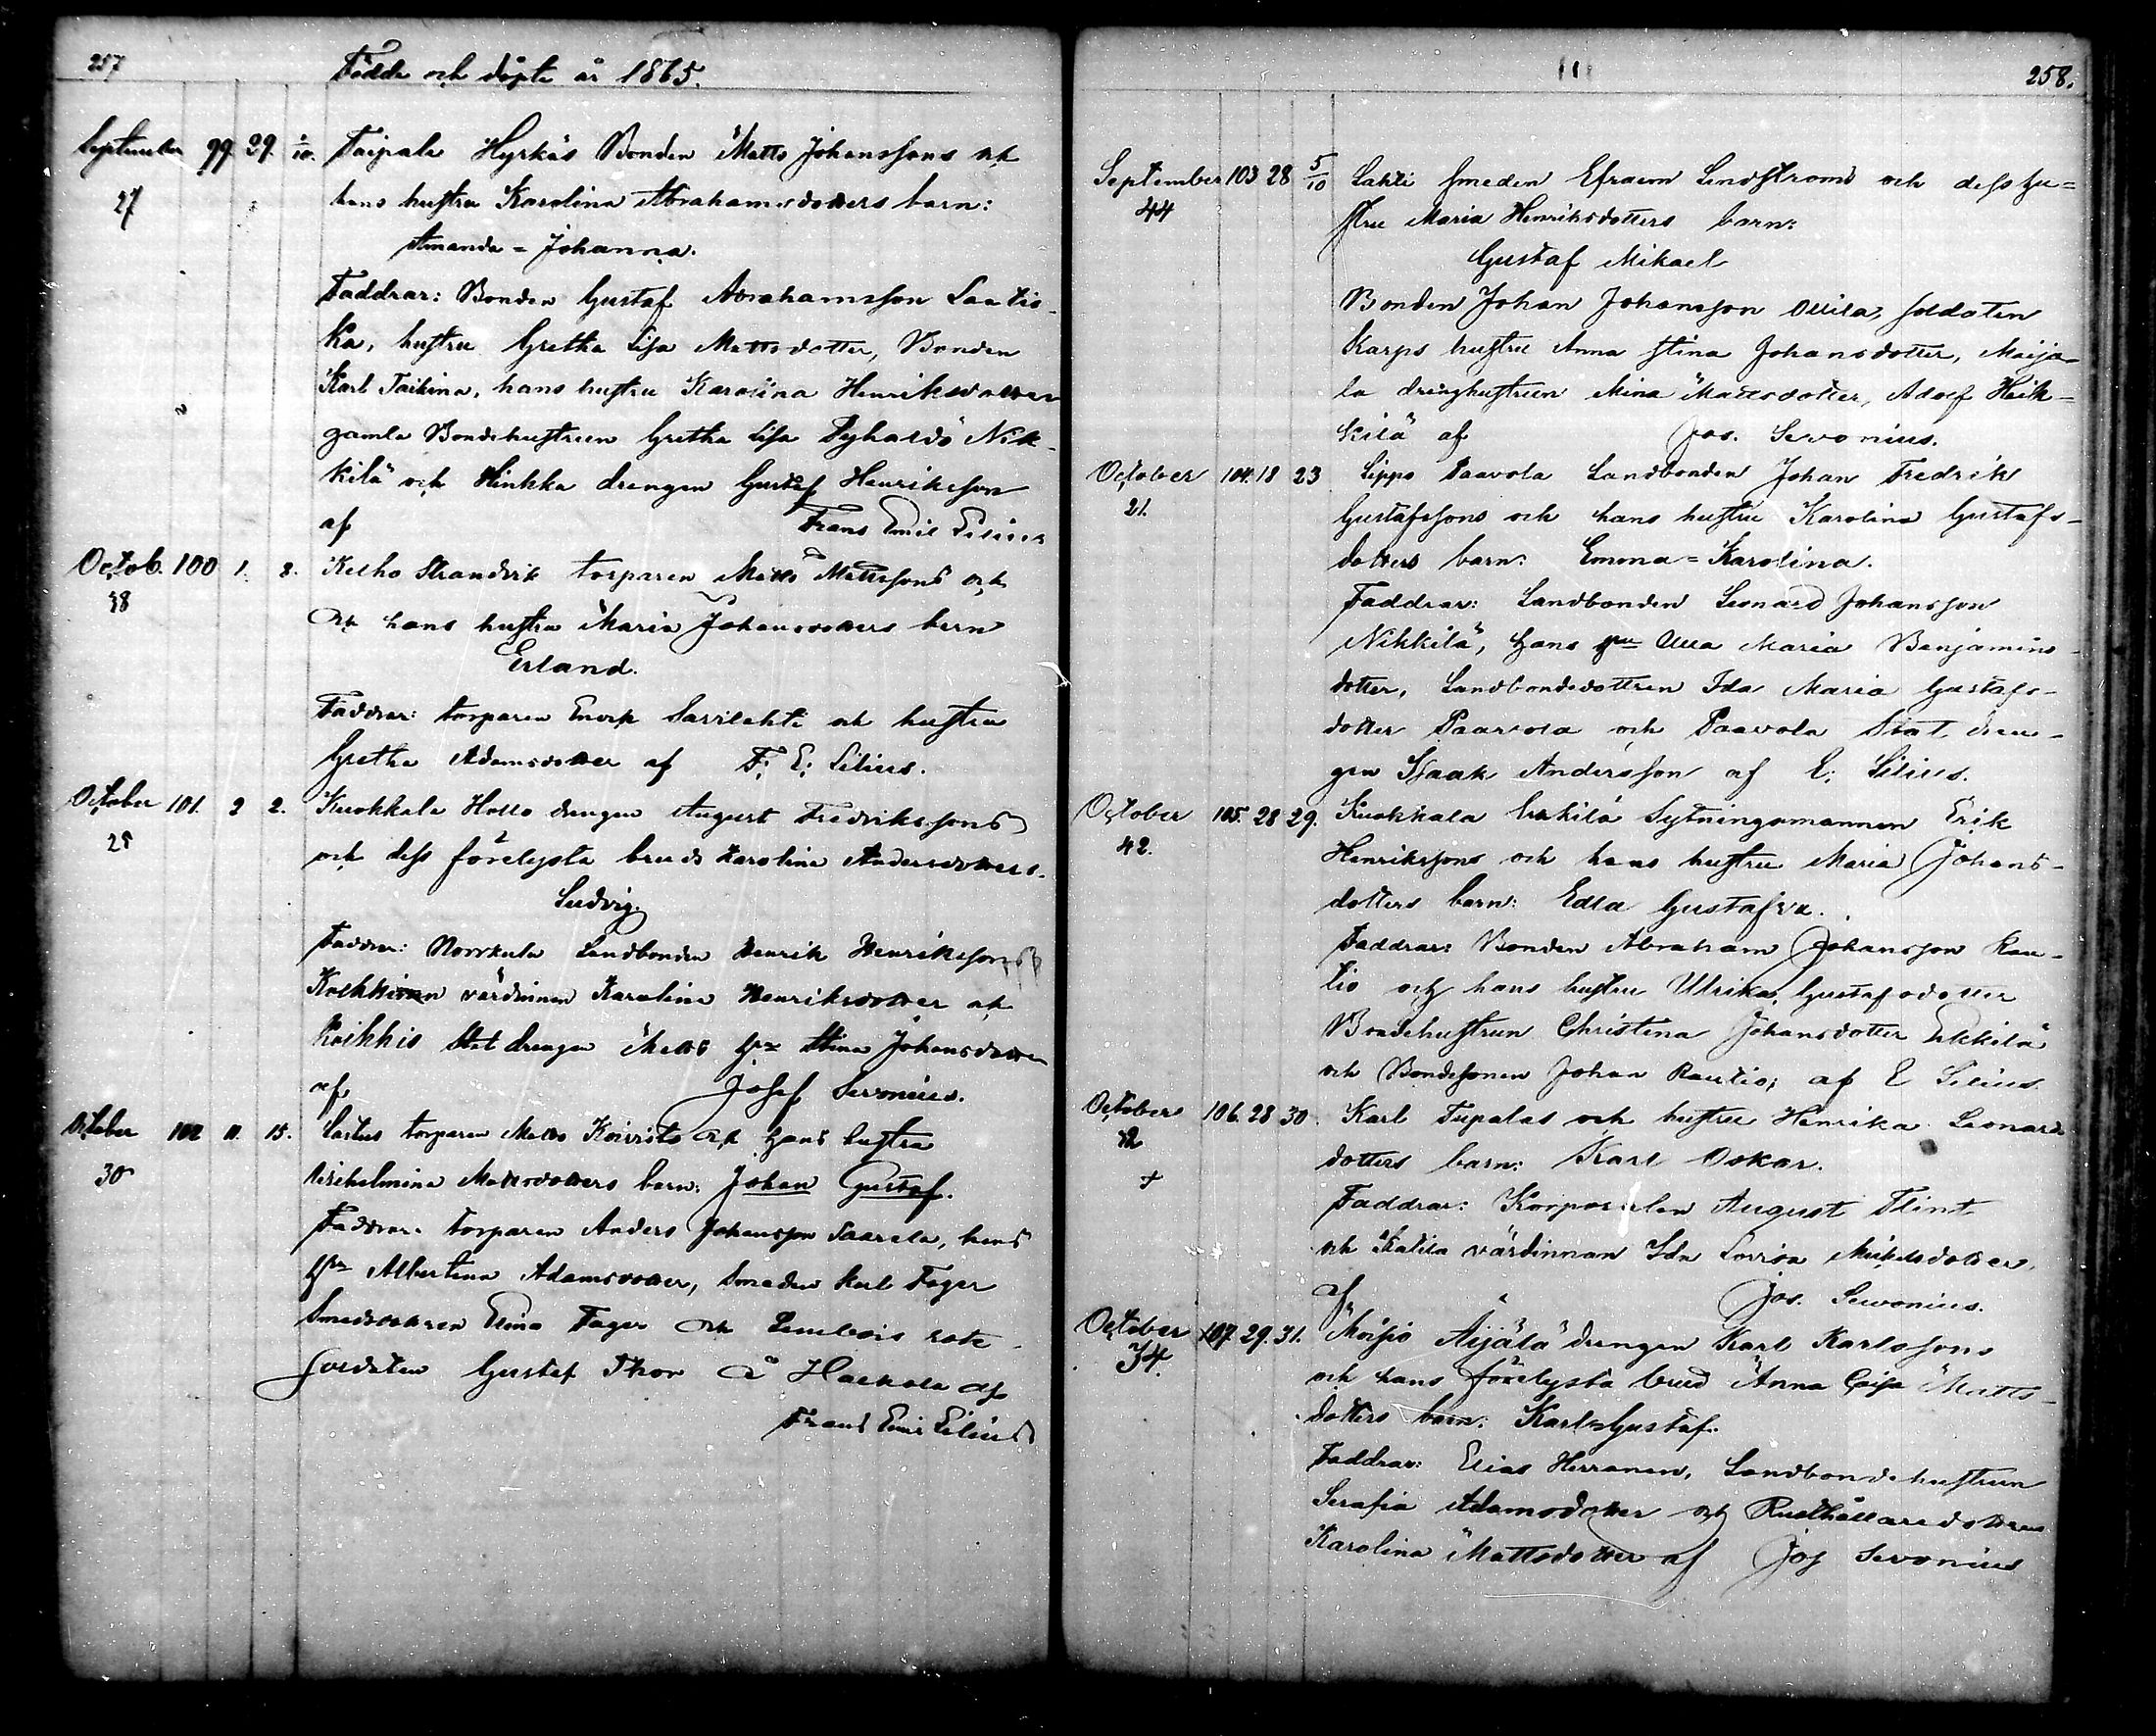 257
Födde och döpte år 1865.
September 99. 29. /10. Taipale Hyrkäs Bonden Matts Johanssons och
27 hans hustru Karolina Abrahamsdotters barn:
Amanda = Johanna.
Faddrar: Bonden Gustaf Abrahamsson Laatis-
ka, hustru Gretha Lisa Mattsdotter, Bonden
Karl Taikina, hans hustru Karolina Henriksdotter
gamla Bondehustrun Gretha Lisa Pyhaldo Nik-
kilä och Hinkka drengen Gustaf Henriksson
af Frans Emil Lilius
Octob. 100 1. 8. Kelho Strandvik torparen Matts Mattssons och
38 och hans hustru Maria Johansdotters barn
Erland.
Faddrar: torparen Enok Sarilahti och hustru
Gretha Adamsdotter af F. E. Lilius.
October 101. 2 2. Kuokkala Hollo drengen August Fredrikssons
25 och dess förelysta bruds Karolina Andersdotters.
Ludvig.
Faddrar: Norrkula Landbonden Henrik Henrikssons
värdinnan Karolina Henriksdotter och
Statdrengen Matts hru Stina Johansdotter
af Josef Sevonius.
October 102 11. 15. torparen Matts Koivisto och hans hustru
30 Wilhelmina Mattsdotters barn: Johan Gustaf.
Faddrar: torparen Anders Johansson Saarela, hans
hru Albertina Adamsdotter, Smeden Karl Fager
Smedsdottren Elina Fager och Lembois rote
soldaten Gustaf Thor å Hackola af
Frans Emil Lilius
258.
September 103 28 5/10 Lahti smeden Efraim Lindstroms och dess hu=
44 stru Maria Henriksdotters barn:
Gustaf Mikael
Bonden Johan Johansson Ollila, soldaten
Karps hustru Anna Stina Johansdotter, Maija-
la drenghustrun Mina Mattsdotter, Adolf Heik-
kilä af Jos. Sevonius.
October 104. 18 23 Lippo Paavola Landbonden Johan Fredrik
21. Gustafssons och hans hustru Karolina Gustafs-
dotters barn: Emma = Karolina.
Faddrar: Landbonden Leonard Johansson
Nikkilä, hans hru Ulla Maria Benjamins-
dotter, Landbondedottren Ida Maria Gustafs-
dotter Paavola och Paavola Stat dren-
gen Isaak Andersson af E. Lilius.
October 105. 28 29. Kuokkala Erkkilä Sytningsmannen Erik
42. Henrikssons och hans hustru Maria Johans-
dotters barn: Edla Gustafva.
Faddrar: Bonden Abraham Johansson Rau-
tio och hans hustru Ulrika Gustafsdotter
Bondehustrun Christina Johansdotter Erkkilä
och Bondesonen Johan Rautio; af E Lilius
October 106. 28 30. Karl Tupalas och hustru Henrika Leonards
42 dotters barn: Karl Oskar.
+
Faddrar: Korporalen August Flint
och Katila värdinnan Ida Lovisa Mickelsdotter,
af Jos. Sevonius.
October 107. 29. 31. Moisio Äijälä drengen Karl Karlssons
34. och hans förelysta brud Anna Caisa Matts-
dotters barn: Karl Gustaf.
Faddrar: Elias Herranen, Landbondehustrun
Serafia Adamsdotter och Rusthållaredottren
Karolina Mattsdotter af Jos Sevonius